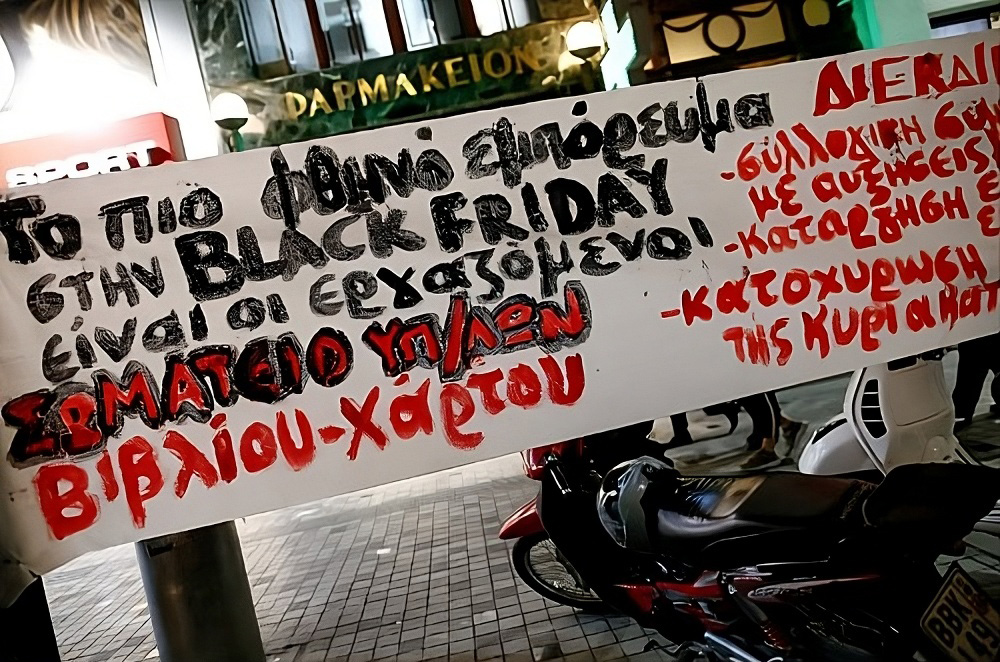 ΦΑΡΜΑΚΕΙΟΝ
SPORT
Το πιο φθηνό εμπόρευμα
στην BLACK FRIDAY
είναι οι εργαζόμενοι
ΣΩΜΑΤΕΙΟ ΥΠ/ΛΩΝ
Βιβλίου-Χάρτου
-συλλογικη
με αυξήσεις
-καταργηση
-κατοχυρωση
της
BBK